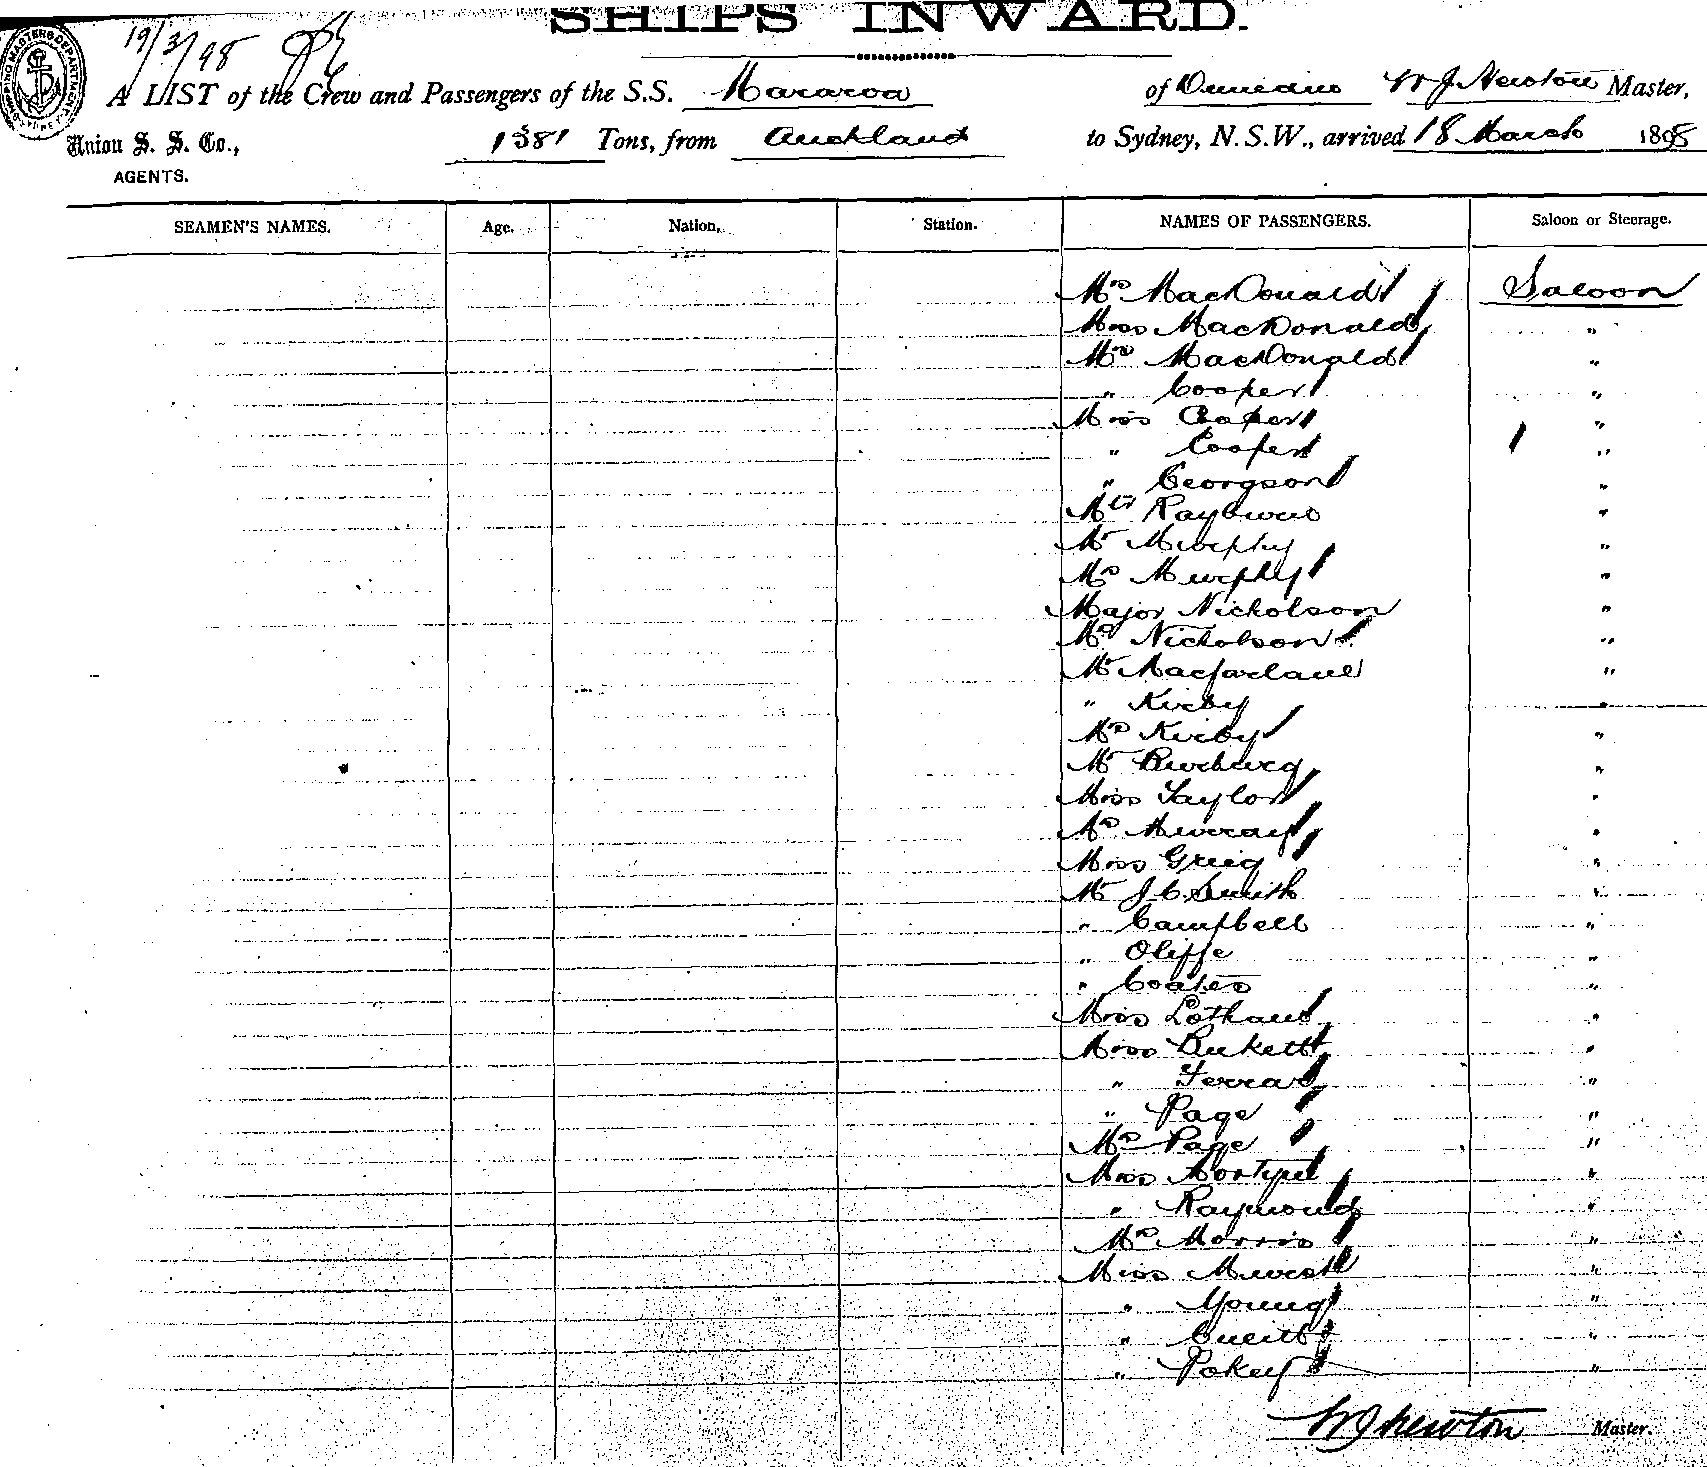 SHIPS INWARD.
19/3/98
A LIST of the Crew and Passengers of the S.S. Mararoa of Dunedin W J Newton Master,
Union S. S. Co.,
AGENTS.
1381 Tons, from Auckland to Sydney, N.S.W., arrived 18 March 1898
SEAMEN'S NAMES. Age. Nation. Station. NAMES OF PASSENGERS. Saloon or Steerage.
Mrs MacDonald Saloon
Miss MacDonald "
Mrs MacDonald "
" Cooper "
Miss Cooper "
" Cooper "
" Georgson "
"
Mr Murphy "
Mrs Murphy "
Major Nicholson "
Mrs Nicholson "
Mr Macfarlane "
" Kirby "
Mrs Kirby "
Mr "
Miss Taylor "
Mrs Murray "
Miss Grieg "
Mr J. C. Smith "
" Campbell "
" Oliffe "
" Coates "
Miss "
Miss "
" "
" Page "
Mrs Page "
Miss "
" Raymond "
Mrs Morris "
Miss "
" Young "
" "
" "
W J Newton Master.